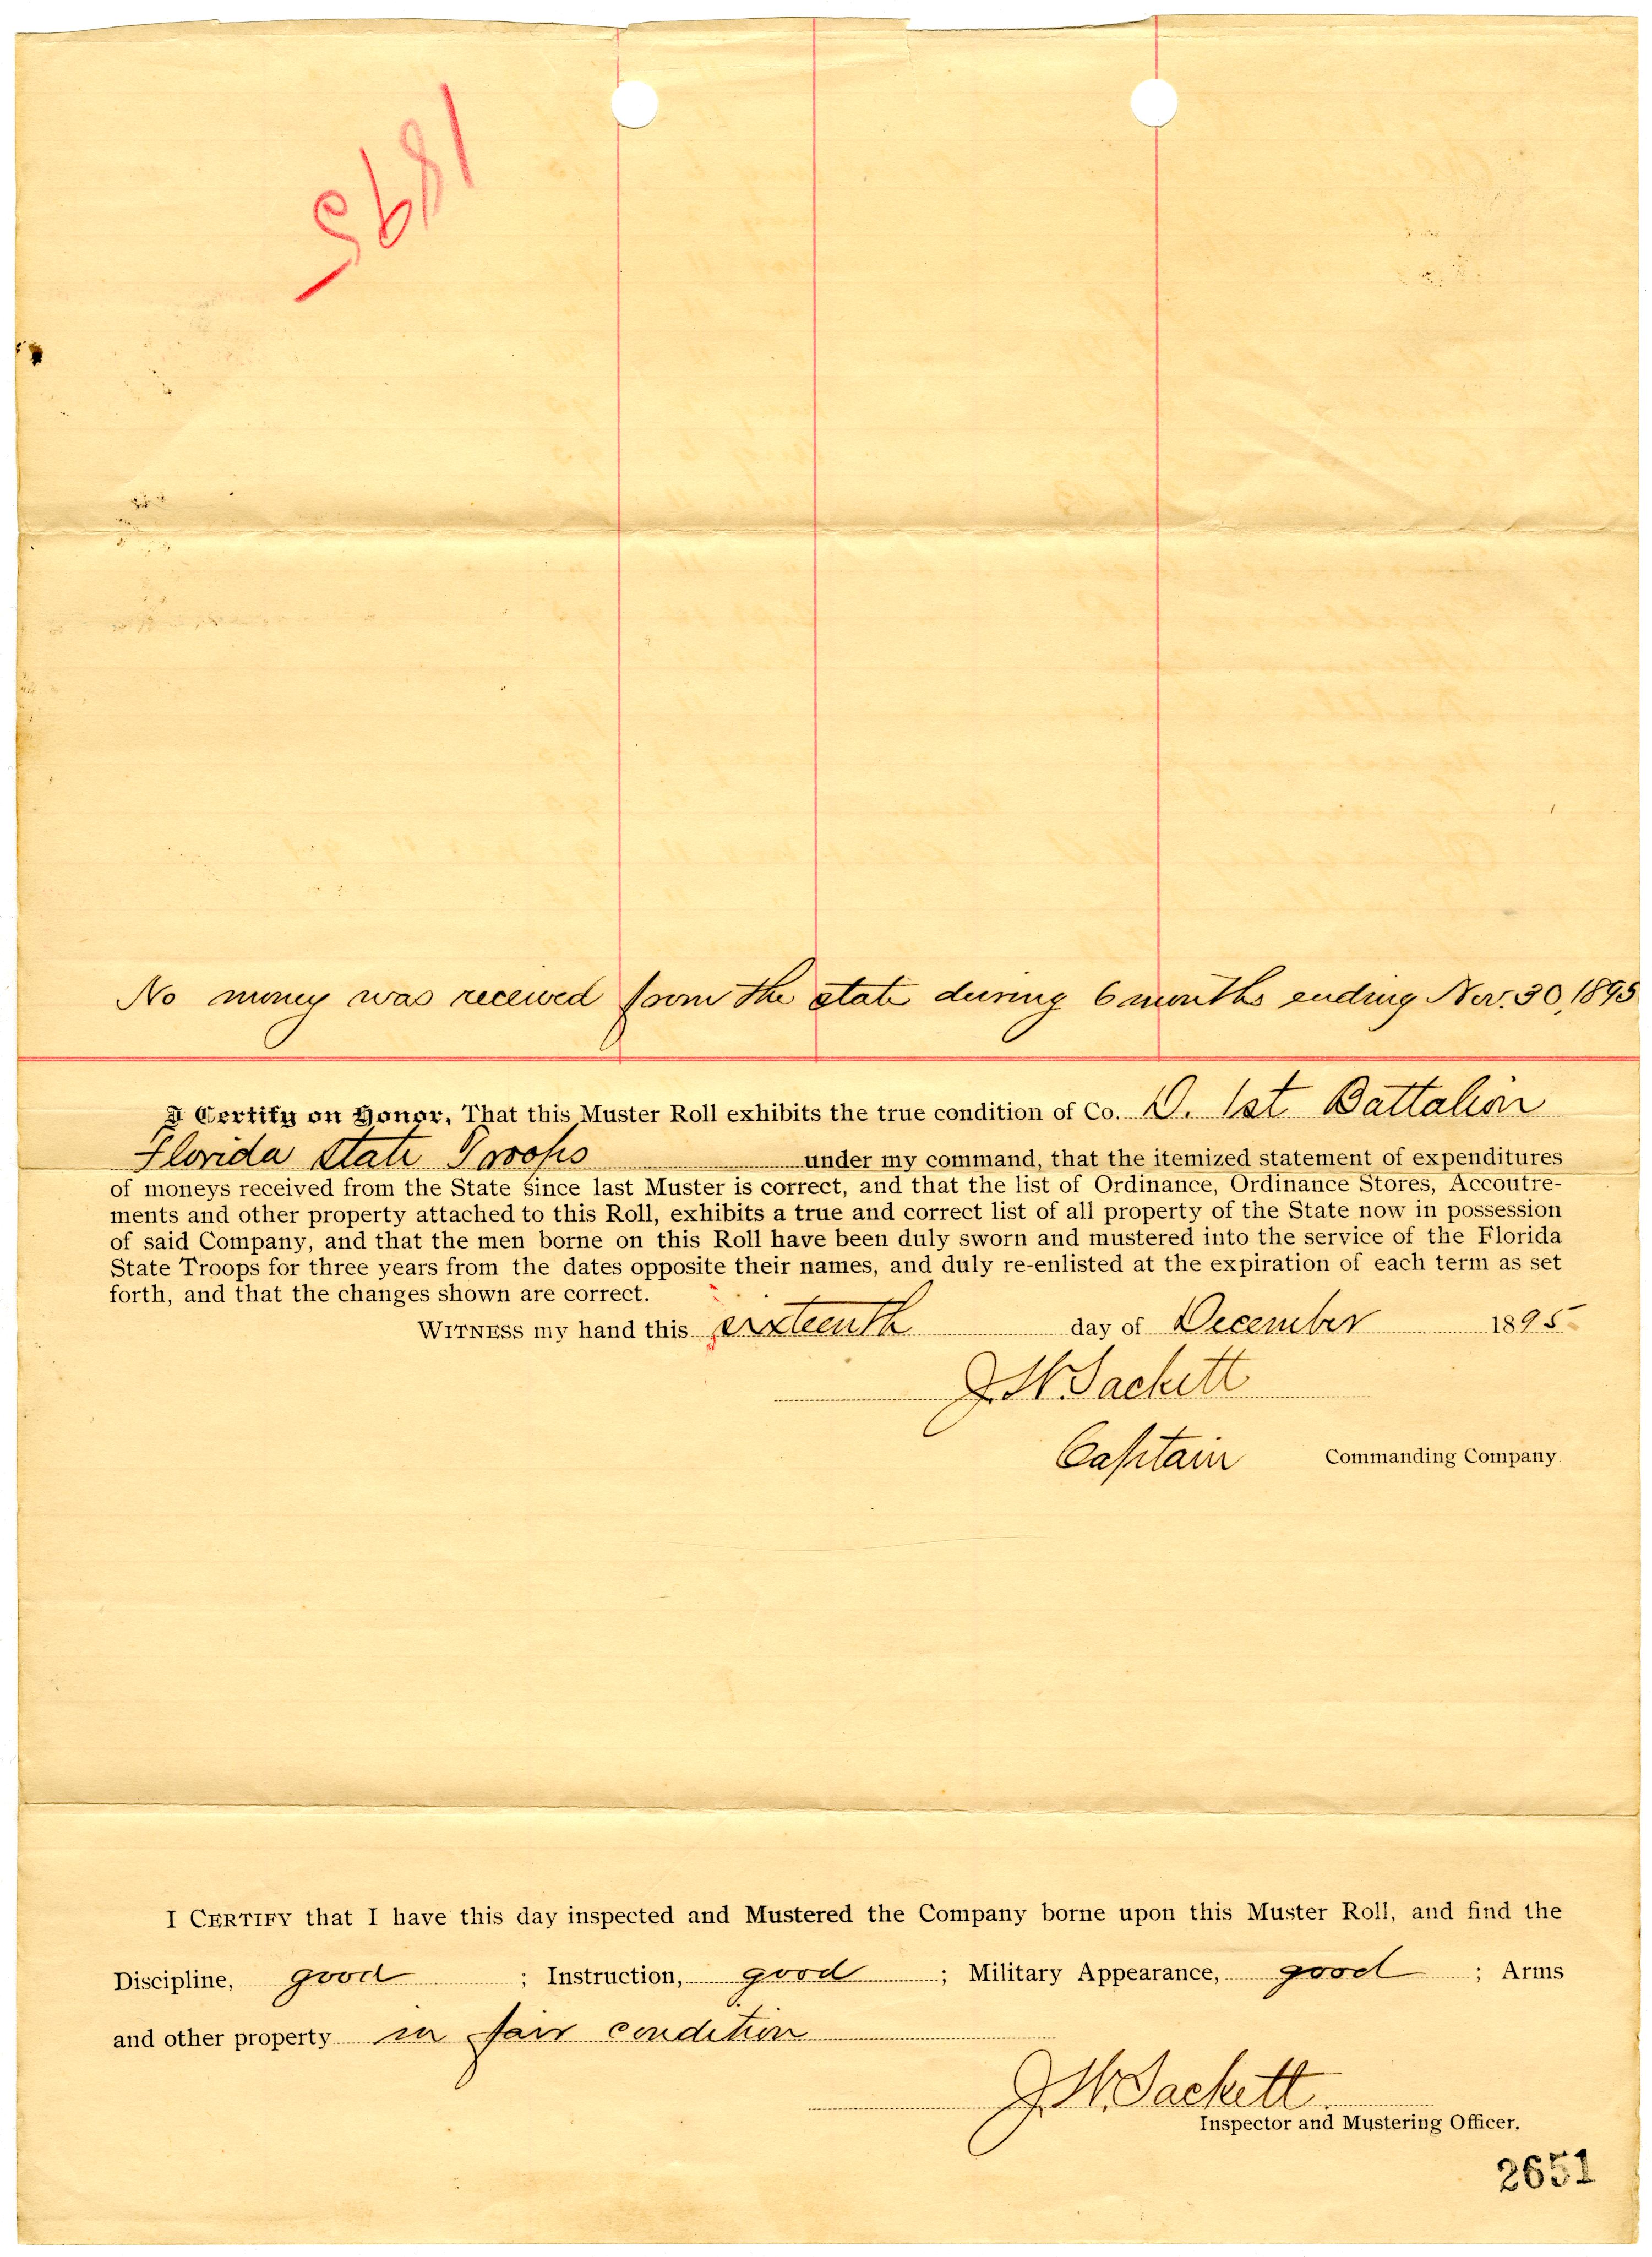 1895
No money was received from the state during 6 months ending Nov. 30, 1895
I Certify on Honor, That this Muster Roll exhibits the true condition of Co. D. 1st Battalion
Florida State Troops under my command, that the itemized statement of expenditures
of moneys received from the State since last Muster is correct, and that the list of Ordinance, Ordinance Stores, Accoutre-
ments and other property attached to this Roll, exhibits a true and correct list of all property of the State now in possession
of said Company, and that the men borne on this Roll have been duly sworn and mustered into the service of the Florida
State Troops for three years from the dates opposite their names, and duly re-enlisted at the expiration of each term as set
forth, and that the changes shown are correct.
WITNESS my hand this sixteenth day of December 1895
J. W. Sackett
Captain Commanding Company
I CERTIFY that I have this day inspected and Mustered the Company borne upon this Muster Roll, and find the
Discipline, good ; Instruction, good ; Military Appearance, good ; Arms
and other property in fair condition
J. W. Sackett.
Inspector and Mustering Officer.
2651